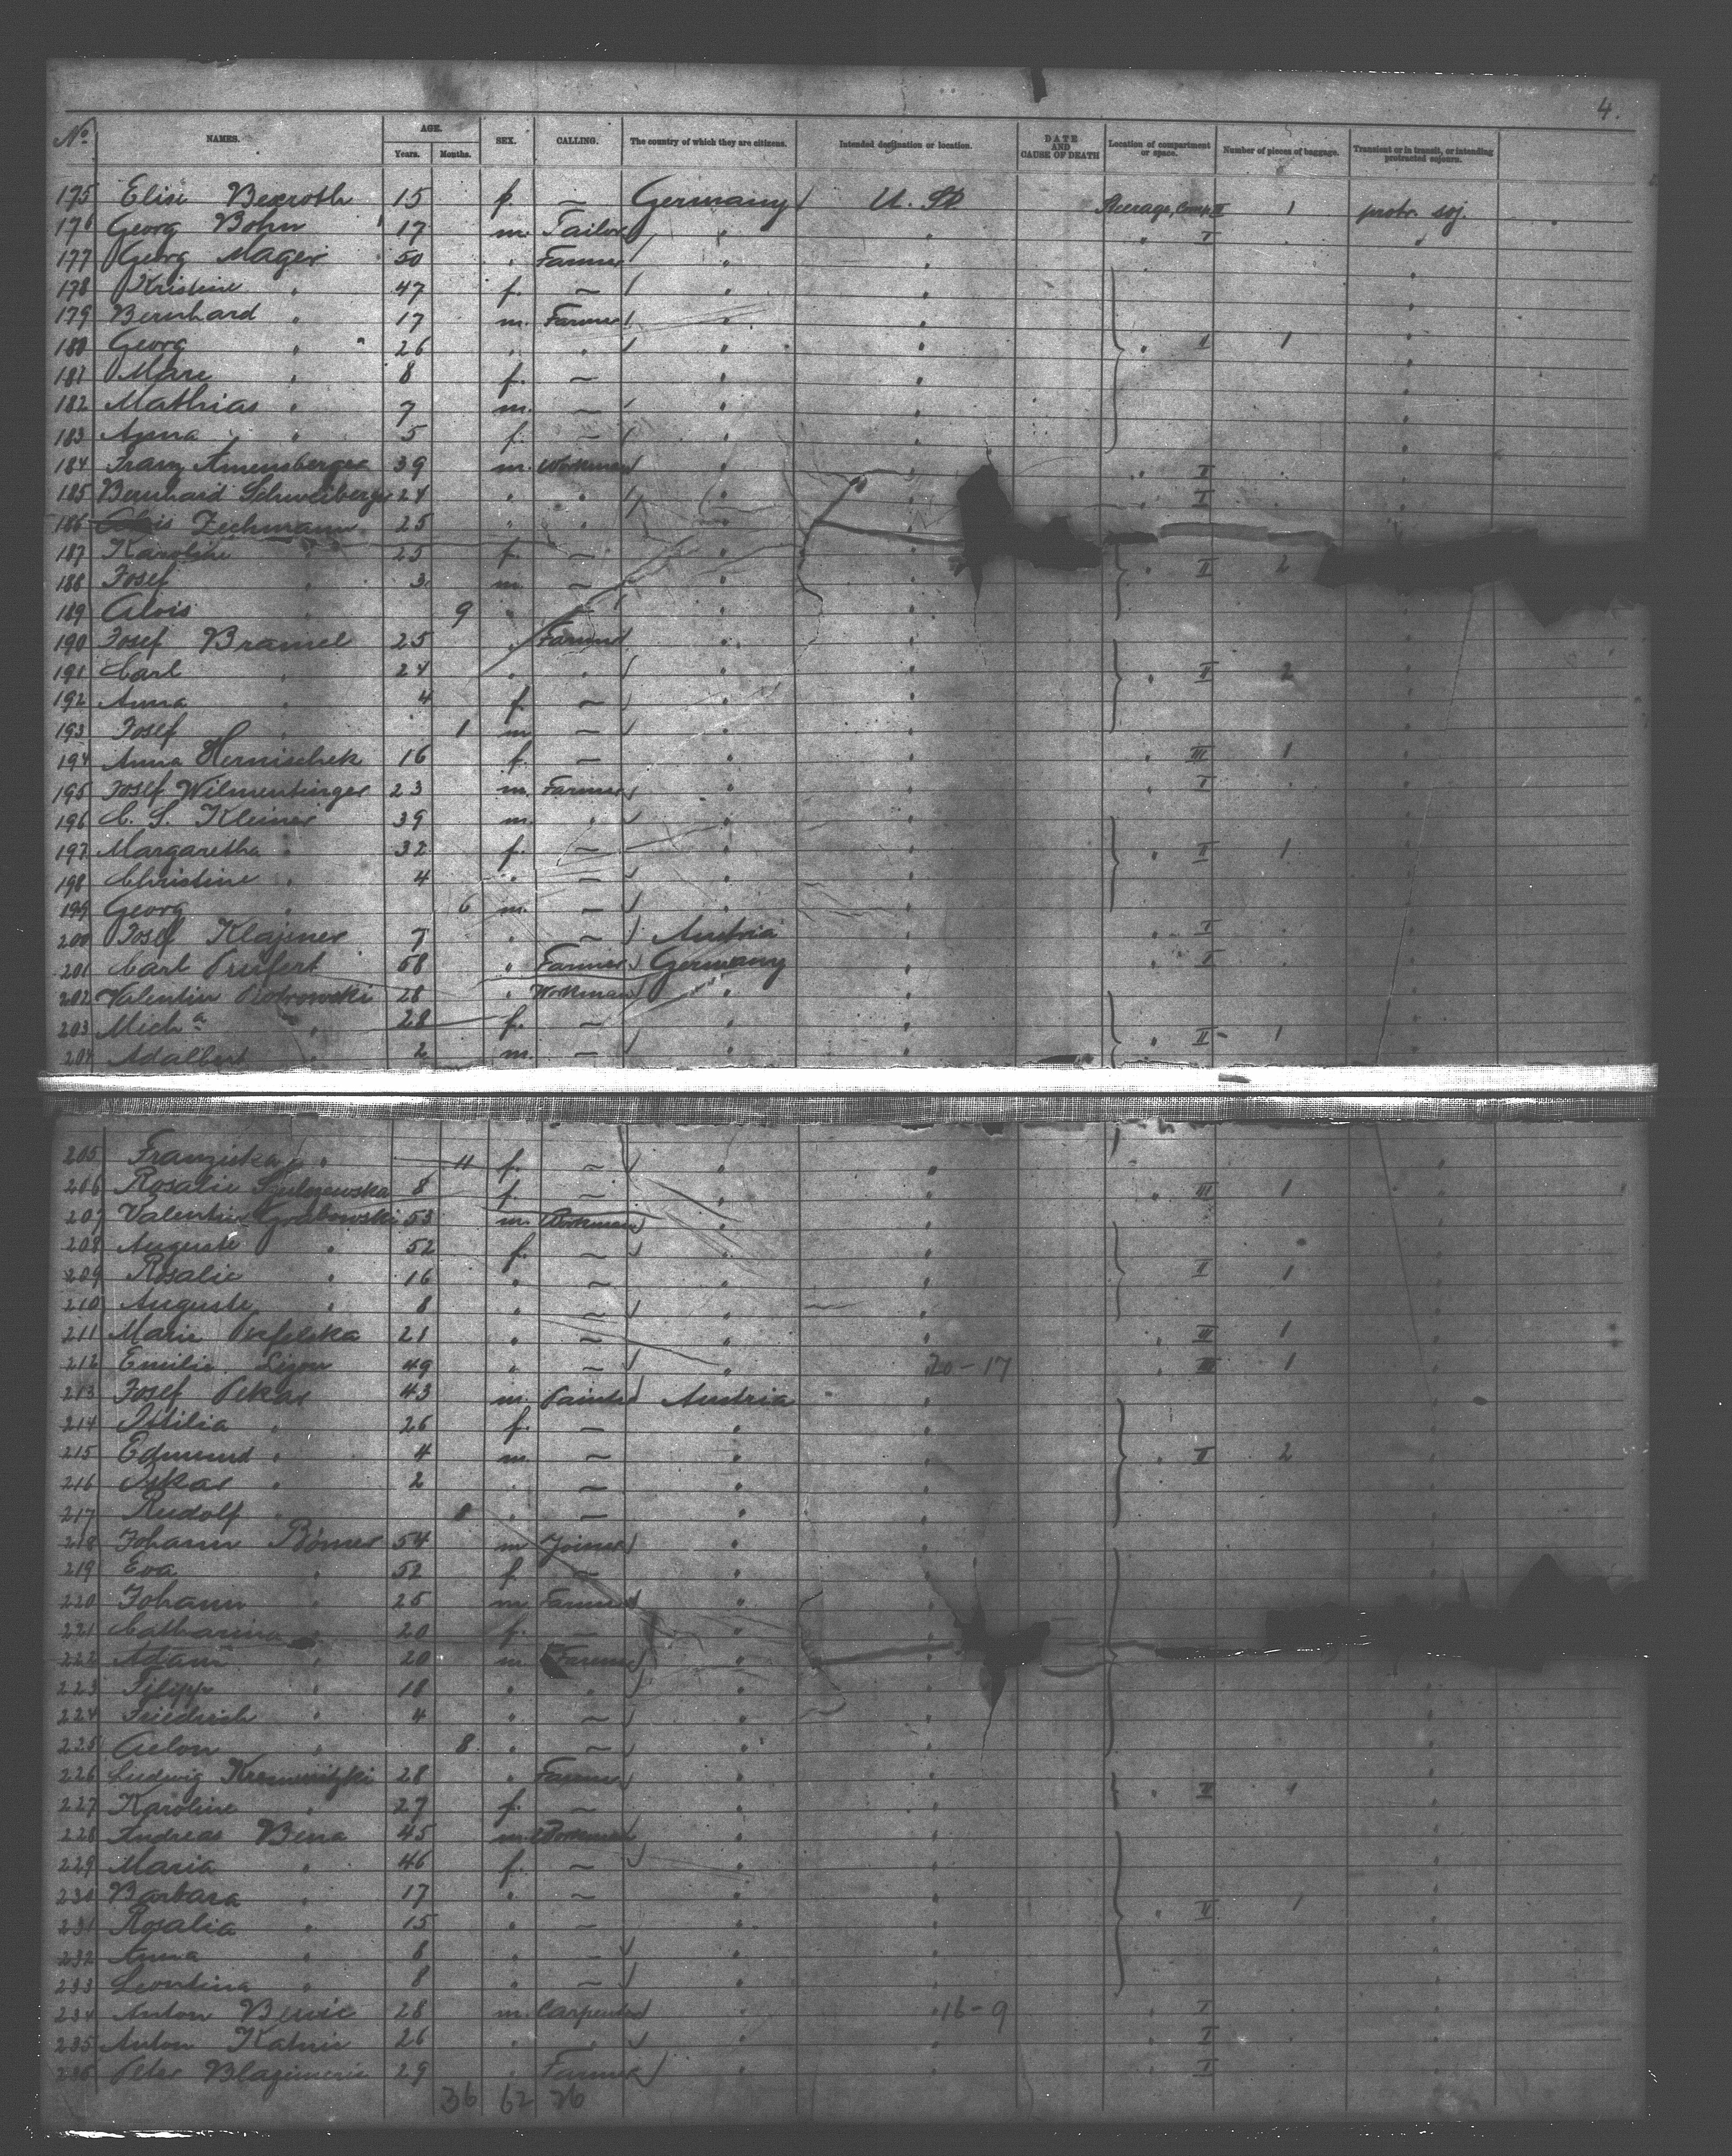 4.
No. NAMES. AGE. Years. Months. SEX. CALLING. The country of which they are citizens. Intended destination or location. DATE AND CAUSE OF DEATH Location of compartment or space. Number of pieces of baggage. Transient or in transit, or intending protracted sojourn.
175 Elise Bexroth 15 f. — Germany U. St. Steerage, Comp. II 1 protr. soj.
176 Georg Bohn 17 m. Tailor " " " I " "
177 Georg Mager 50 " Farmer " " "
178 Kristine " 47 f. — " " "
179 Bernhard " 17 m. Farmer " " "
180 Georg " 26 " " " " " II 1 "
181 Marie " 8 f. — " " "
182 Mathias " 7 m. — " " "
183 Anna " 5 f. — " " "
184 Franz Amensberger 39 m. Workman " " " II " "
185 Bernhard Schweiberger 24 " " " " " I " "
186 Alois Zechmann 25 " " " "
187 Karoline " 25 f. — " " " II 2
188 Josef " 3 m. — " "
189 Alois " 9 " — " " "
190 Josef Bramel 25 " Farmer " " "
191 Carl " 24 " " " " " II 2 "
192 Anna " 4 f. — " " "
193 Josef " 1 m — " " "
194 Anna Hernischek 16 f. — " " " III 1 "
195 Josef Wilmentinger 23 m. Farmer " " " I " "
196 C. S. Kleiner 39 m. " " " "
197 Margaretha " 32 f. — " " " II 1 "
198 Christine " 4 " — " " "
199 Georg " 6 m. — " " "
200 Josef Klajener 7 " — Austria " " I " "
201 Carl Prufert 58 " Farmer Germany " " I " "
202 Valentin Piotrowski 28 " Workman " " "
203 Mich a " 28 f. — " " " II 1 "
204 Adalbert " 2 m. — " " "
205 Franziska " 11 f. — " " "
206 Rosalie 8 f. — " " " III 1 "
207 Valentin Grabowski 53 m. Workman " " "
208 Auguste " 52 f. — " " "
209 Rosalie " 16 " — " " II 1 "
210 Auguste " 8 " — " " "
211 Marie 21 " — " " " III 1 "
212 Emilie 49 " — " 20-17 " III 1 "
213 Josef Pekar 43 m. Painter Austria " "
214 Ottilia " 26 f. — " " "
215 Edmund " 4 m. — " " " II 2 "
216 Oskar " 2 " — " " "
217 Rudolf " 8 " — " " "
218 Johann Römer 54 m Joiner " " "
219 Eva " 52 f. — " "
220 Johann " 25 m. Farmer " "
221 Catharina " 20 f. — " "
222 Adam " 20 m Farmer " "
223 Filipp " 18 " " " " "
224 Friedrich " 4 " — " " "
225 " 8 " — " " "
226 Ludwig 28 " Farmer " " " II 1 "
227 Karoline " 27 f. — " " "
228 Andreas Bena 45 m. Workman " " "
229 Maria " 46 f. — " " "
230 Barbara " 17 " — " " " II 1 "
231 Rosalia " 15 " — " " "
232 Anna " 8 " — " " "
233 Leontina " 8 " — " " "
234 Anton 28 m. Carpenter " 16-9 " I " "
235 Anton 26 " " " " " I " "
236 Peter 29 " Farmer " " " I " "
36 62 26